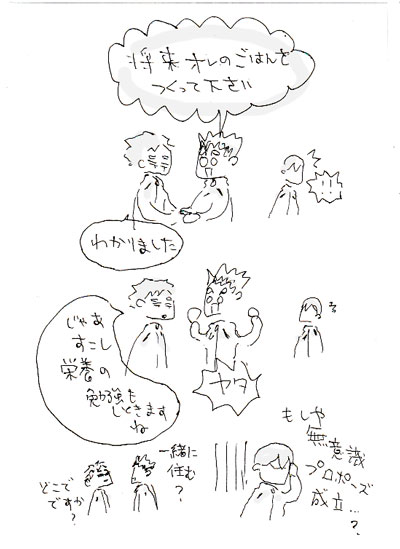 将来オレのごはんを
つくって下さい
!!!
わかりました
じゃあ
すこし
栄養の
勉強も
しときます
ね
ヤダ
もしや
無意識
プロポーズ
成立…
?
一緒に
住む
?
どこで
ですか
?